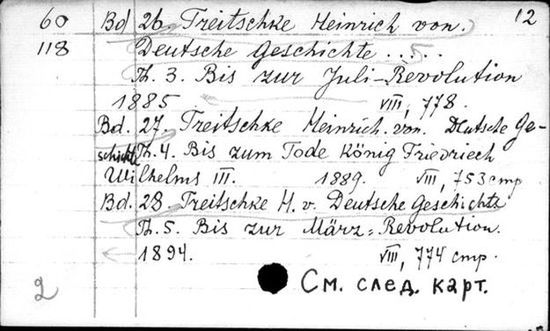 12
60 Bd 26. Treitschke Heinrich von.
118 Deutsche Geschichte.....
Th. 3. Bis zur Juli-Revolution
1885 VIII, 778.
Bd. 27. Treitschke Heinrich von. Deutsche Ge-
schichte Th. 4. Bis zum Tode König Friedriech
Wilhelms III. 1889. VIII, 753 стр
Bd. 28. Treitschke H. v. Deutsche Geschichte
Th. 5. Bis zur März-Revolution.
1894. VIII, 774 стр.
2 См. след. карт.